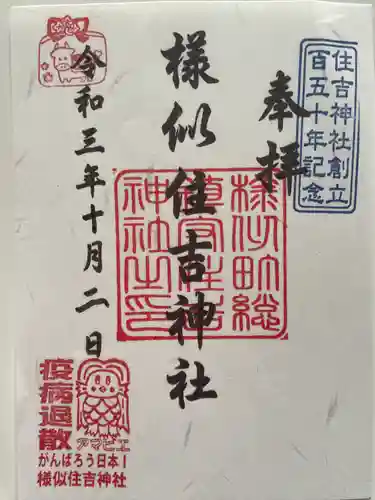 住吉神社創立
百五十年記念
奉拝
様似住吉神社
様似町総
鎮守住吉
神社之印
令和三年十月二日
疫病退散
アマビエ
がんばろう日本!
様似住吉神社